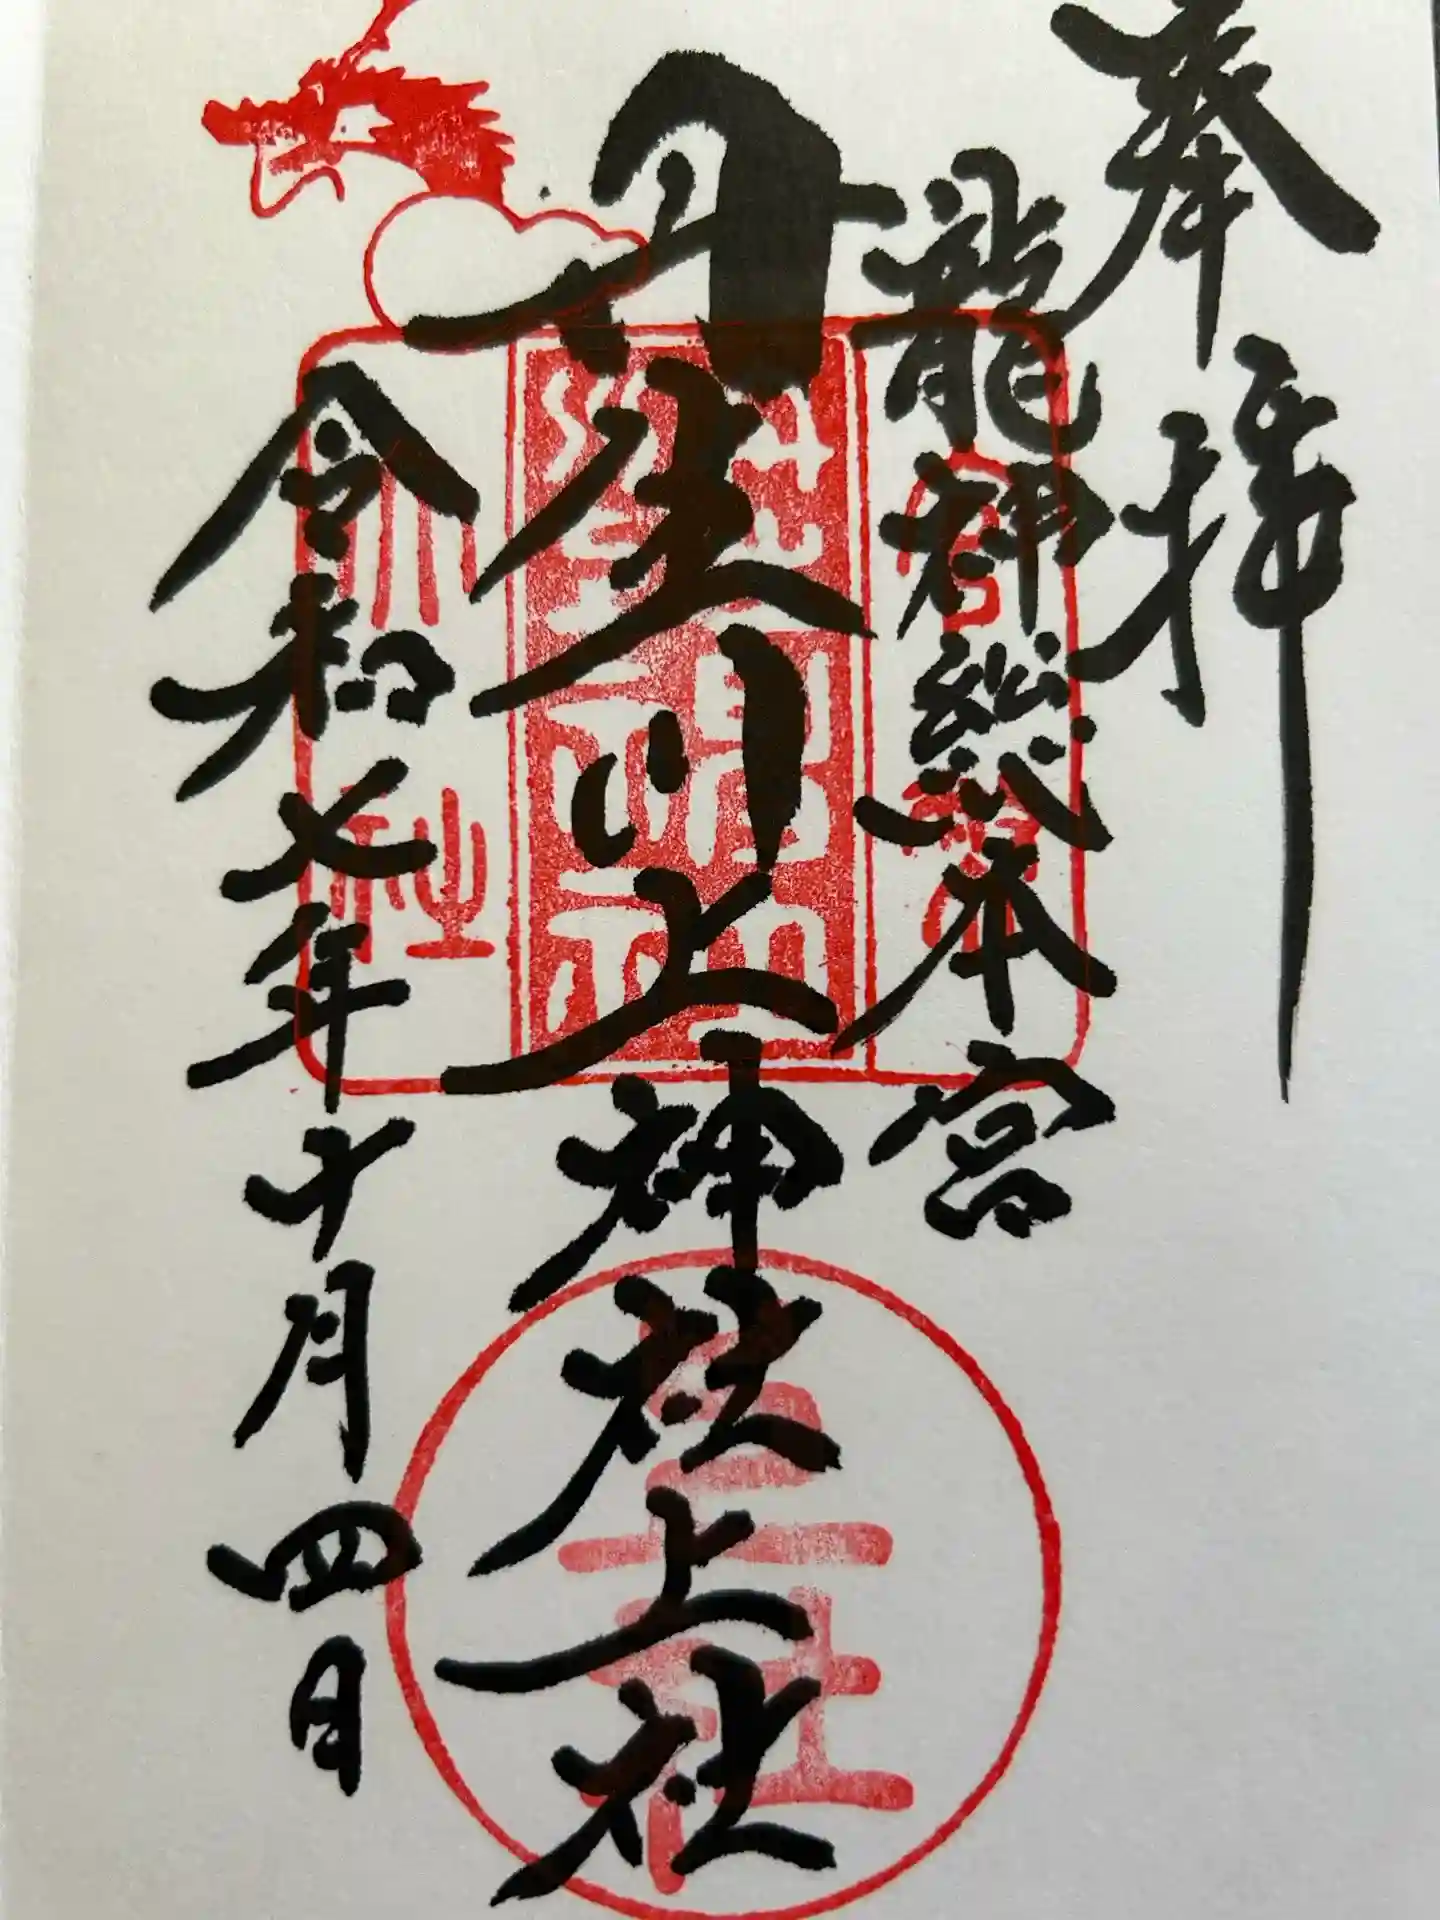 奉拝
龍神総本宮
丹生川上神社上社
令和七年十月四日
上社